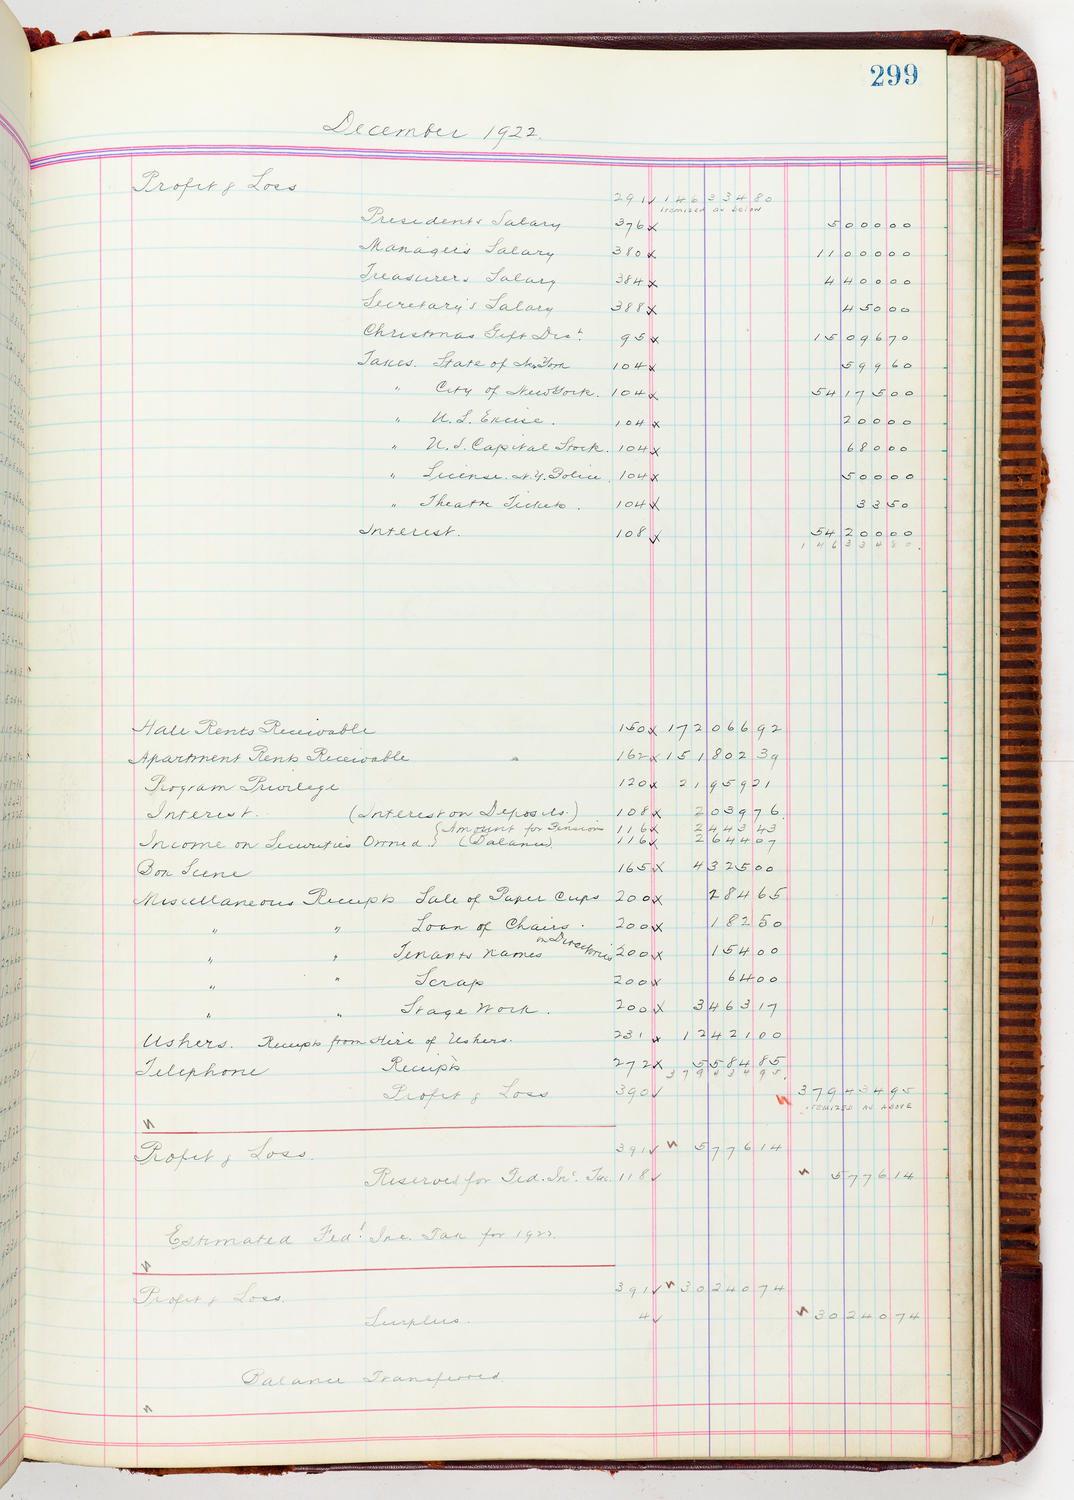 299
December 1922.
Profit & Loss 291 ✓ 146 334 80
Itemized as below
Presidents Salary 376 x 5 000 00
Manager's Salary 380 x 11 000 00
Treasurers Salary 384 x 4 400 00
Secretary's Salary 388 x 450 00
Christmas Gift Dist. 95 x 15 096 70
Taxes. State of New York 104 x 599 60
" City of New York. 104 x 54 175 00
" U.S. Excise. 104 x 200 00
" U.S. Capital Stock. 104 x 680 00
" License. N.Y. Police. 104 x 500 00
" Theatre Tickets. 104 x 33 50
Interest. 108 x 54 200 00
146 334 80.
Hall Rents Receivable 150 x 172 066 92
Apartment Rents Receivable 162 x 151 802 39
Program Privilege 120 x 21 959 21
Interest. (Interest on Deposits.) 108 x 2 039 76
(Amount for Pensions 116 x 2 443 43
Income on Securities Owned. (Balance) 116 ✓ 2 644 07
Bon Scene 165 x 4 325 00
Miscellaneous Receipts Sale of Paper Cups 200 x 284 65
" " Loan of Chairs. 200 x 182 50
" " Tenants names on Directories 200 x 154 00
" " Scrap 200 x 64 00
" " Stage Work. 200 x 3 463 17
Ushers. Receipts from Hire of Ushers. 231 x 12 421 00
Telephone Receipts 272 x 5 584 85
379 434 95.
Profit & Loss 390 ✓ 379 434 95
Itemized as above
Profit & Loss. 391 ✓ 5 776 14
Reserves for Fed. Inc. Tax. 118 ✓ 5 776 14
Estimated Fed'l Inc. Tax for 1922.
Profit & Loss. 391 ✓ 30 240 74
Surplus. 4 ✓ 30 240 74
Balance Transferred